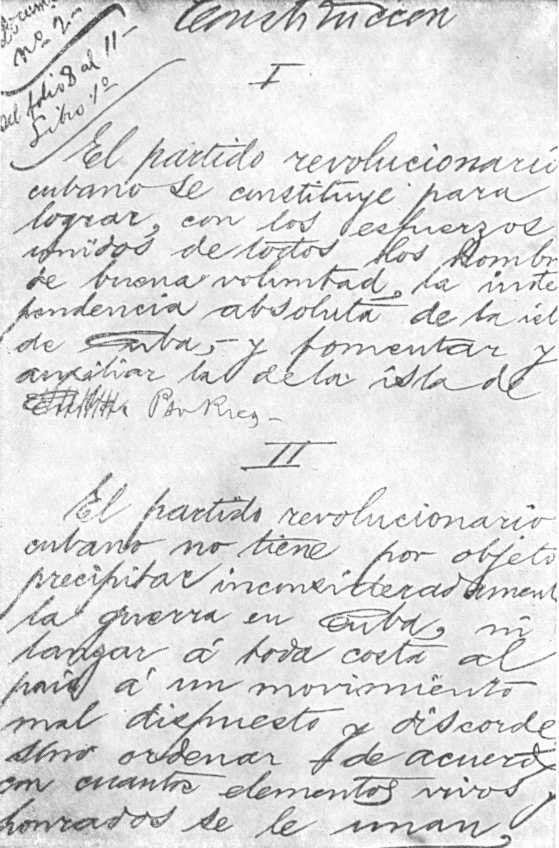 Docum
nº 2
Del folio 8 al 11-
Libro 1º
Constitucion
I
El partido revolucionario
cubano se constituye para
lograr, con los esfuerzos
unidos de todos los hombr
de buena voluntad, la inde
pendencia absoluta de la isl
de Cuba, - y fomentar y
auxiliar la de la isla de
Pto Rico -
II
El partido revolucionario
cubano no tiene por objeto
precipitar inconsideradament
la guerra en Cuba, ni
lanzar á toda costa al
pais á un movimiento
mal dispuesto y discorde
sino ordenar de acuerdo
con cuantos elementos vivos y
honrados se le unan,